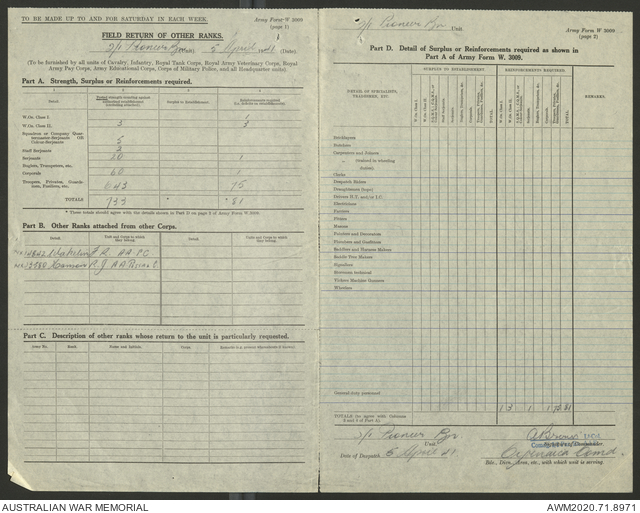 TO BE MADE UP TO AND FOR SATURDAY IN EACH WEEK.
Army Form W 3009
(page 1)
FIELD RETURN OF OTHER RANKS.
2/1 Pioneer Bn (Unit) 5 April 1941 (Date)
(To be furnished by all units of Cavalry, Infantry, Royal Tank Corps, Royal Army Veterinary Corps, Royal
Army Pay Corps, Army Educational Corps, Corps of Military Police, and all Headquarter units)
Part A. Strength, Surplus or Reinforcements required.
1 2 3 4
Detail.
Surplus to Establishment.
W.Os. Class I. 1
W.Os. Class II. 3 3
Squadron or Company Quarter-
master-Serjeants OR
Colour-Serjeants 5
Staff Serjeants 2
Serjeants 20 1
Buglers, Trumpeters, etc.
Corporals 60 1
Troopers, Privates, Guardsmen, Fusiliers, etc. 643 75
TOTALS 733 * * 81
* These totals should agree with the details shown in Part D on page 2 of Army Form W 3009.
Part B. Other Ranks attached from other Corps.
Detail. Unit and Corps to which they belong. Detail. Unit and Corps to which they belong.
F R. AA PC
R. J AA
Part C. Description of other ranks whose return to the unit is particularly requested.
Army No. Rank. Name and Initials. Corps.
2/1 Pioneer Bn Unit
Army Form W 3009
(page 2)
Part D. Detail of Surplus or Reinforcements required as shown in
Part A of Army Form W. 3009.
DETAIL OF SPECIALISTS, TRADESMEN, ETC.
SURPLUS TO ESTABLISHMENT.
REINFORCEMENTS REQUIRED.
REMARKS.
W.Os. Class I.
W.Os. Class II.
Staff Serjeants.
Serjeants.
Corporals.
TOTAL
Bricklayers
Butchers
Carpenters and Joiners
„ (trained in wheeling duties)
Clerks
Despatch Riders
Draughtsmen (topo)
Drivers H.T. and/or I.C.
Electricians
Farriers
Fitters
Masons
Painters and Decorators
Plumbers and Gasfitters
Saddlers and Harness Makers
Saddle-Tree Makers
Signallers
Storemen technical
Vickers Machine Gunners
Wheelers
General-duty personnel
TOTALS (to agree with Columns 3 and 4 of Part A)
1 3 1 1 75 81
2/1 Pioneer Bn
Unit.
Date of Despatch. 5 April 41
Cyrenaica Comd
Bde., Divn., Area, etc., with which unit is serving.
AUSTRALIAN WAR MEMORIAL
AWM2020.71.8971